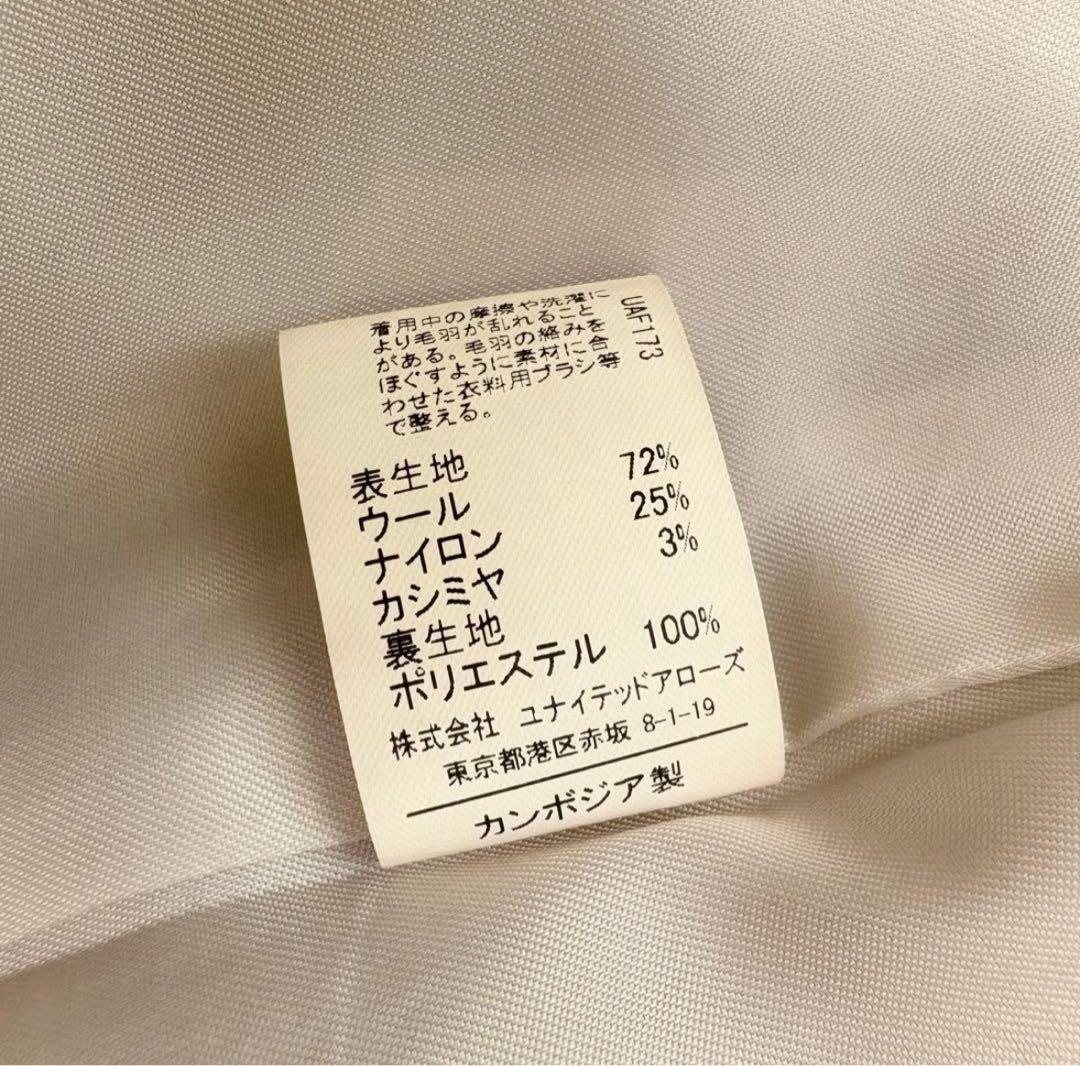 着用中の摩擦や洗濯に
より毛羽が乱れること
がある。毛羽の絡みを
ほぐすように素材に合
わせた衣料用ブラシ等
で整える。
UAF173
表生地
ウール 72%
ナイロン 25%
カシミヤ 3%
裏生地
ポリエステル 100%
株式会社 ユナイテッドアローズ
東京都港区赤坂 8-1-19
カンボジア製